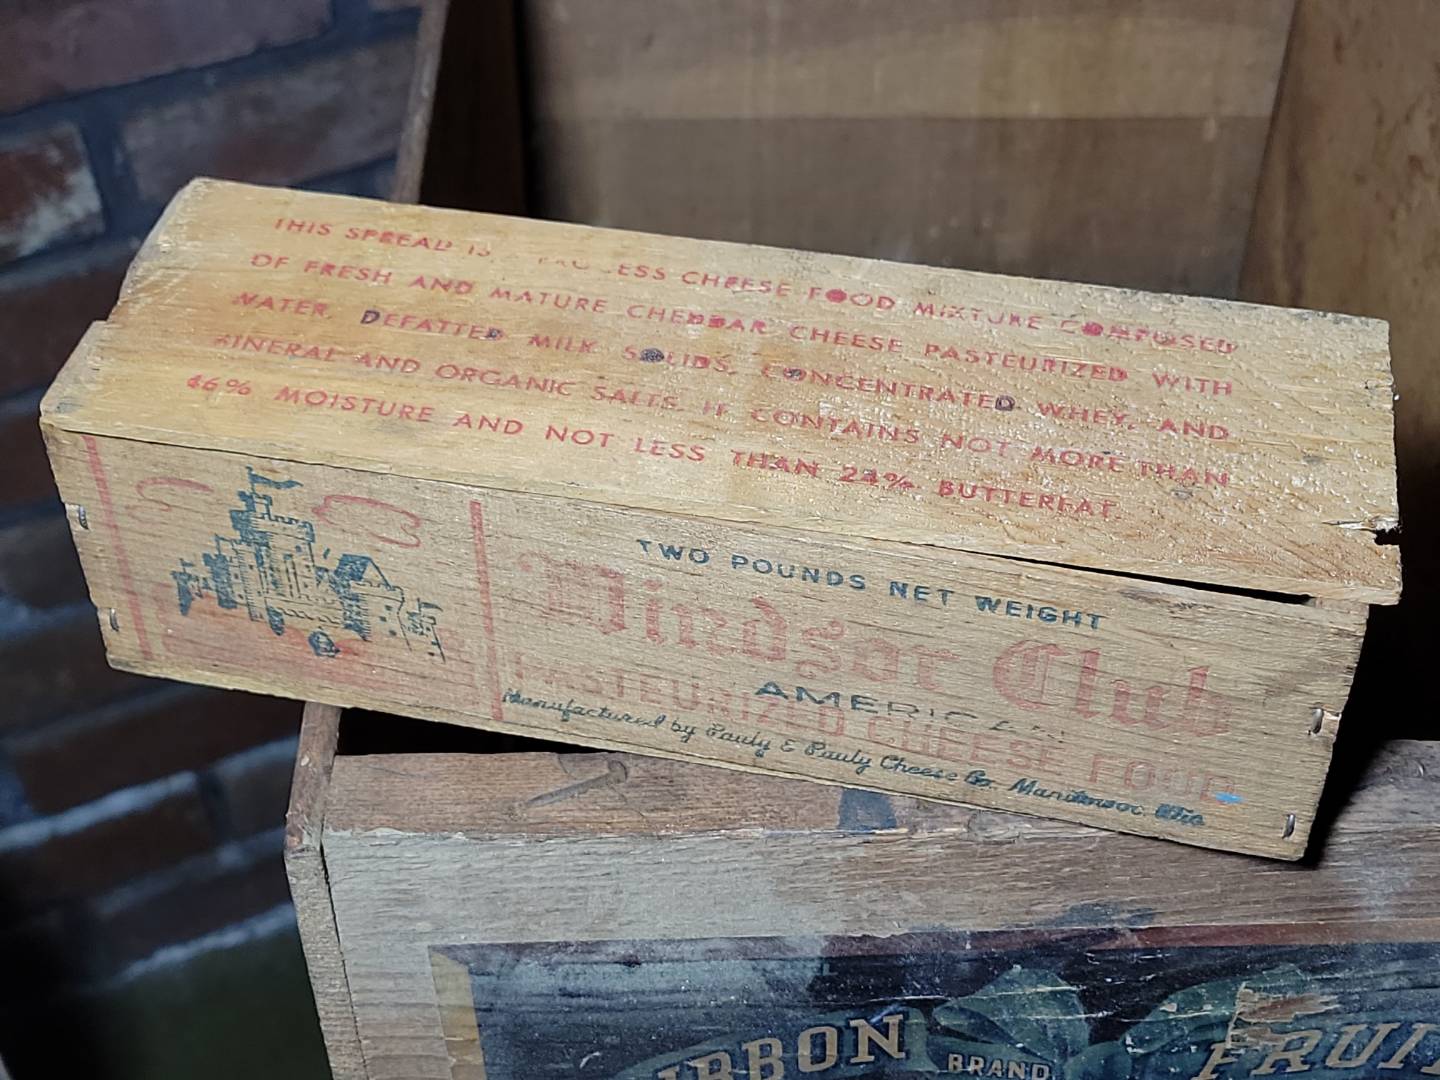 THIS SPREAD IS A PROCESS CHEESE FOOD MIXTURE COMPOSED
OF FRESH AND MATURE CHEDDAR CHEESE PASTEURIZED WITH
WATER, DEFATTED MILK SOLIDS, CONCENTRATED WHEY, AND
MINERAL AND ORGANIC SALTS. IT CONTAINS NOT MORE THAN
46% MOISTURE AND NOT LESS THAN 24% BUTTERFAT.
TWO POUNDS NET WEIGHT
Windsor Club
AMERICAN
PASTEURIZED CHEESE FOOD
Manufactured by Pauly & Pauly Cheese Co. Manitowoc, Wis.
BRAND